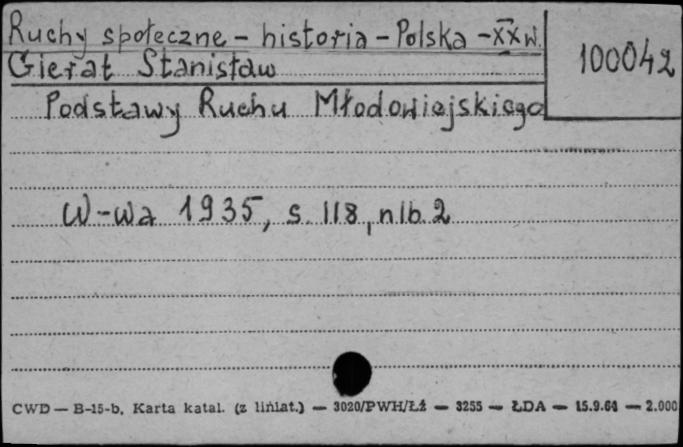 Ruchy społeczne - historia - Polska - XX w.
100042
Gierat Stanisław
Podstawy Ruchu Młodowiejskiego
W-wa 1935, s. 118, nlb. 2
CWD — B-15-b, Karta katal. (z liniat.) — 3020/PWH/Łż — 3255 — ŁDA — 15.9.64 — 2.000